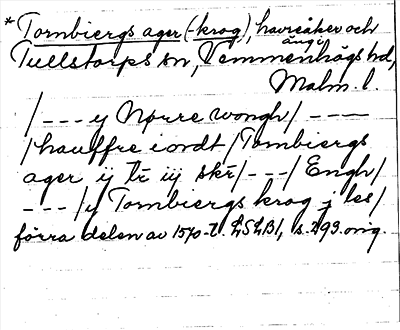 *Tornbiergs ager (-krog), havreåker och
äng i
Tullstorps sn, Vemmenhögs hd,
Malm. l.
/--- y Nørre wongh/ ---
/hauffre iordt/Tornbiergs
ager ij tr iij skr/---/Engh/
--- /y Tornbiergs krog j les/
förra delen av 1570-t. LSLB1, s. 293. orig.